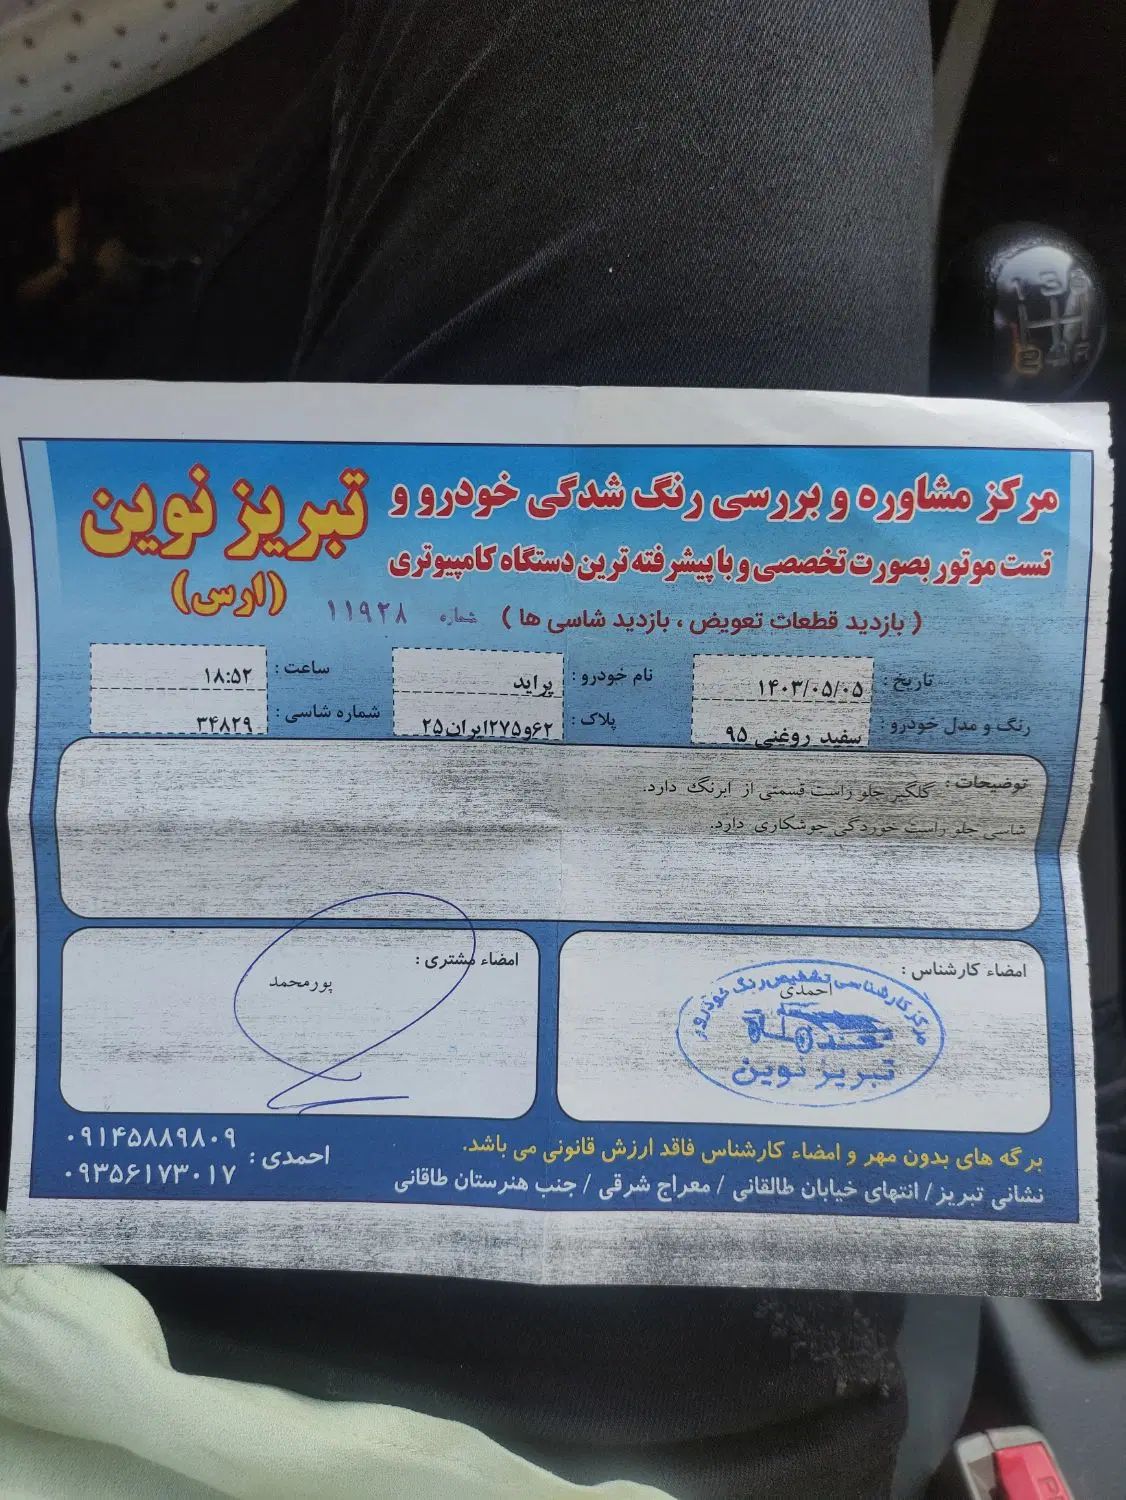 مرکز مشاوره و بررسی رنگ شدگی خودرو و
تبریز نوین
تست موتور بصورت تخصصی و با پیشرفته ترین دستگاه کامپیوتری
(ارس)
( بازدید قطعات تعویض ، بازدید شاسی ها )
شماره ۱۱۹۲۸
تاریخ : ۱۴۰۳/۰۵/۰۵
نام خودرو : پراید
ساعت : ۱۸:۵۲
رنگ و مدل خودرو : سفید روغنی ۹۵
پلاک : ۶۲و۲۷۵ایران۲۵
شماره شاسی : ۳۴۸۲۹
توضیحات : گلگیر جلو راست قسمتی از ابرنگ دارد.
شاسی جلو راست خوردگی جوشکاری دارد.
امضاء کارشناس :
احمدی
مرکز کارشناسی تشخیص رنگ خودرو
سهند
تبریز نوین
امضاء مشتری :
پورمحمد
برگه های بدون مهر و امضاء کارشناس فاقد ارزش قانونی می باشد.
نشانی تبریز/ انتهای خیابان طالقانی / معراج شرقی / جنب هنرستان طاقانی
احمدی :
۰۹۱۴۵۸۸۹۸۰۹
۰۹۳۵۶۱۷۳۰۱۷
1 3 5
2 4 R